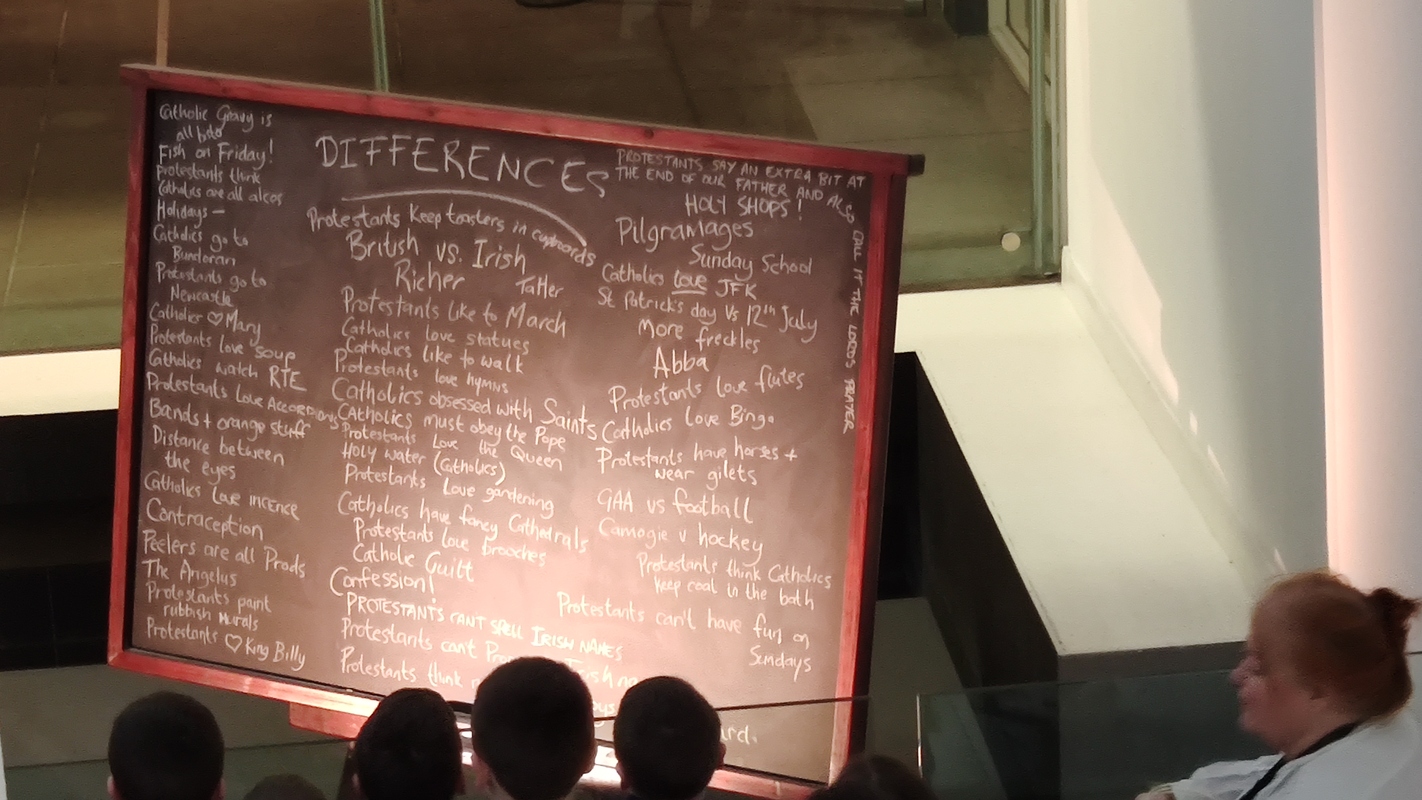 DIFFERENCES
Catholic Gravy is
all bisto
Fish on Friday!
Protestants think
Catholics are all alcos
Holidays -
Catholics go to
Bundoran
Protestants go to
Newcastle
Catholics ♡ Mary
Protestants love soup
Catholics watch RTE
Protestants Love Accordions
Bands + orange stuff
Distance between
the eyes
Catholics love incence
Contraception
Peelers are all Prods
The Angelus
Protestants paint
rubbish murals
Protestants ♡ King Billy
Protestants keep toasters in cupboards
British vs. Irish
Richer Taller
Protestants like to March
Catholics love statues
Catholics like to walk
Protestants love hymns
Catholics obsessed with Saints
CAtholics must obey the Pope
Protestants Love the Queen
HOLY water (Catholics)
Protestants Love gardening
Catholics have fancy Cathedrals
Protestants Love brooches
Catholic Guilt
Confession!
PROTESTANTS CAN'T SPELL IRISH NAMES
Protestants can't
Protestants think
PROTESTANTS SAY AN EXTRA BIT AT
THE END OF OUR FATHER AND ALSO CALL IT THE LORDS PRAYER
HOLY SHOPS!
Pilgramages
Sunday School
Catholics love JFK
St Patrick's day Vs 12th July
More freckles
Abba
Protestants love flutes
Catholics love Bingo
Protestants have horses +
wear gilets
GAA vs football
Camogie v hockey
Protestants think Catholics
keep coal in the bath
Protestants can't have fun on
Sundays